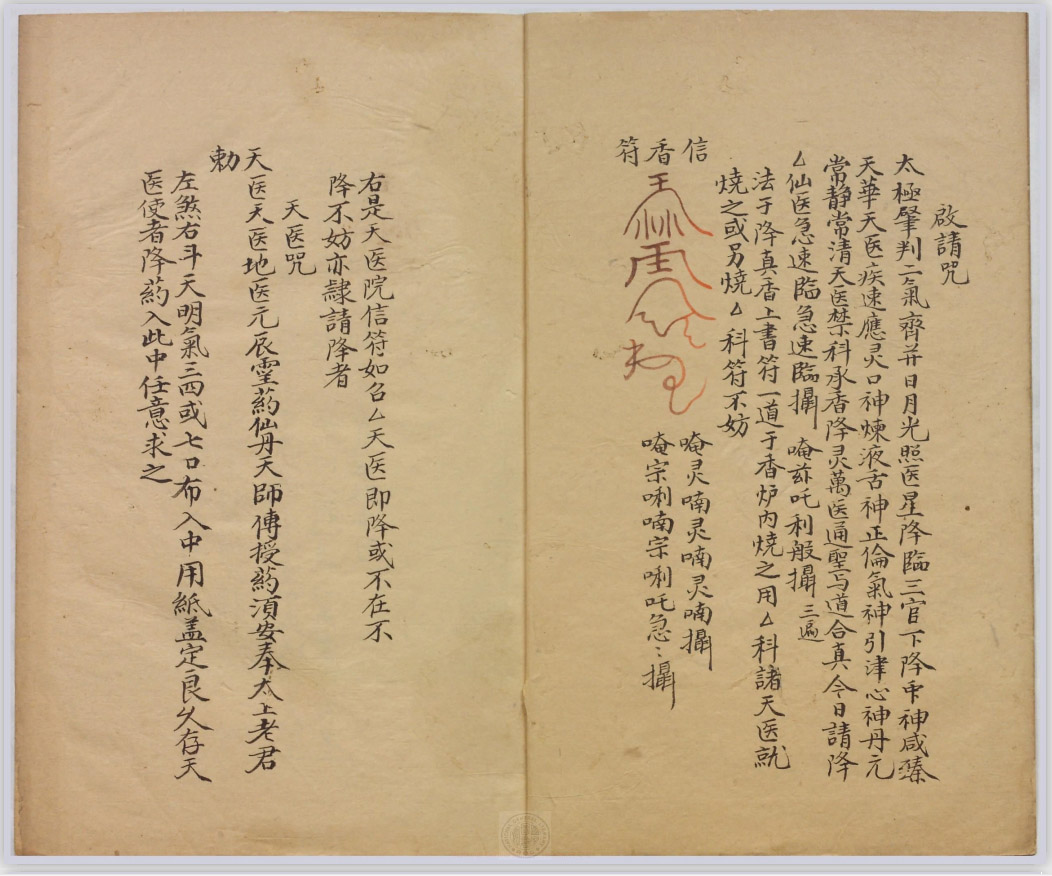 啟請咒
太極肇判二氣齊并日月光照医星降臨三官下降雷神咸臻
天華天医疾速應灵口神煉液舌神正倫氣神引津心神丹元
常静常清天医禁科承香降灵萬医通聖与道合真今日請降
厶仙医急速臨急速臨攝 唵 吒利般攝 三遍
法于降真香上書符一道于香炉内燒之用厶科諸天医就
燒之或另燒厶科符不妨
信香符
唵灵喃灵喃灵喃攝
唵宗唎喃宗唎吒急〻攝
右是天医院信符如召厶天医即降或不在不
降不妨亦隷請降者
天医咒
天医天医地医元辰靈药仙丹天師傳授药須安奉太上老君
勅
左煞右斗天明氣三四或七口布入中用紙盖定良久存天
医使者降药入此中任意求之